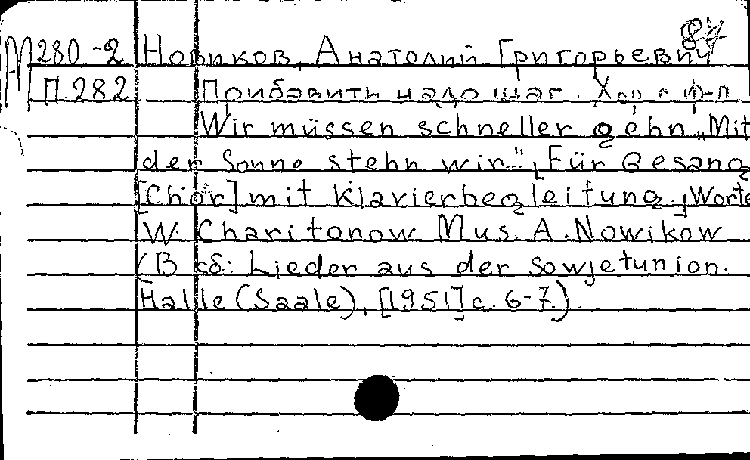 87
М280-2 Новиков, Анатолий Григорьевич
П.282 Прибавить надо шаг. Хор с ф-п.
Wir müssen schneller gehn „Mit
der Sonne stehn wir." Für Gesang
[Chor] mit Klavierbegleitung. Worte
W. Charitonow Mus. A. Nowikow
(В сб: Lieder aus der Sowjetunion.
Halle (Saale), [1951] с. 6-7.)